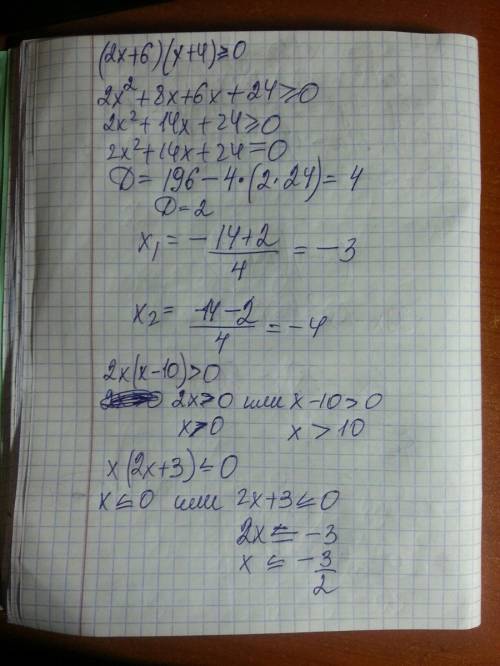 (2x+6)(x+4)≥0
2x²+8x+6x+24≥0
2x²+14x+24≥0
2x²+14x+24=0
D=196-4·(2·24)=4
D=2
x₁=-\frac{14+2}{4}=-3
x₂=\frac{-14-2}{4}=-4
2x(x-10)>0
2x>0 или x-10>0
x>0 x>10
x(2x+3)≤0
x≤0 или 2x+3≤0
2x≤-3
x≤-\frac{3}{2}